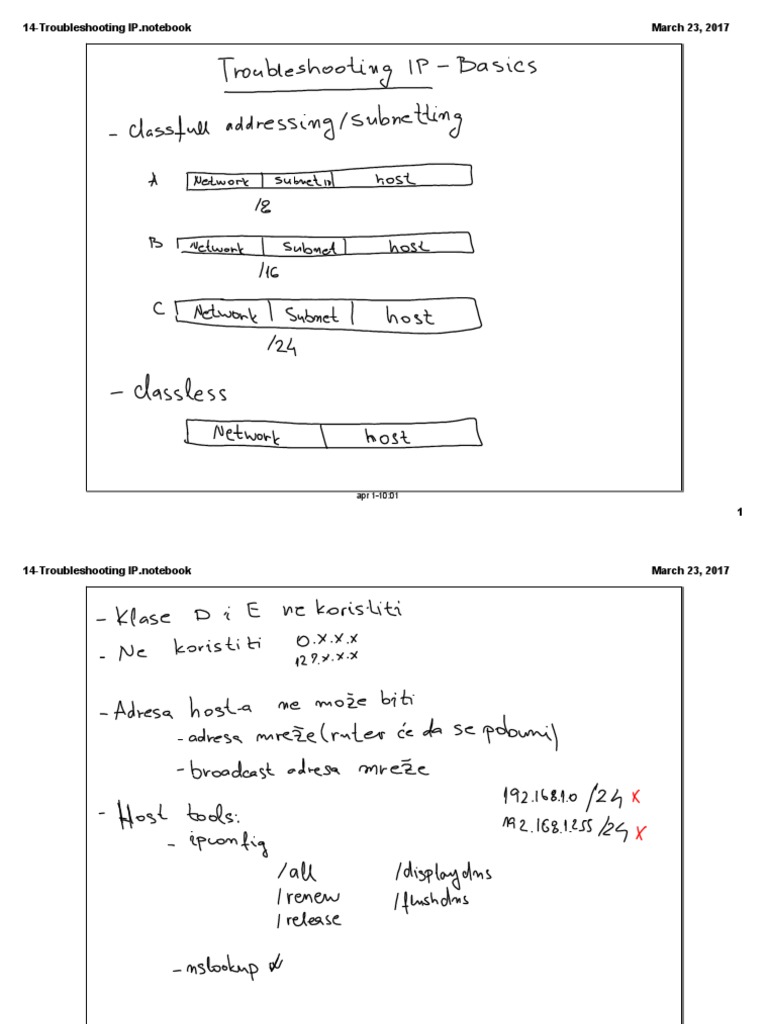 14-Troubleshooting IP.notebook March 23, 2017
Troubleshooting IP - Basics
- classfull addressing/subnetting
A Network Subnet ID host
/8
B Network Subnet host
/16
C Network Subnet host
/24
- classless
Network host
apr 1-10:01
1
14-Troubleshooting IP.notebook March 23, 2017
- Klase D i E ne koristiti
- Ne koristiti 0.x.x.x
127.x.x.x
- Adresa host-a ne može biti
- adresa mreže (ruter će da se pobuni)
- broadcast adresa mreže
192.168.1.0 /24 x
192.168.1.255 /24 x
- Host tools:
- ipconfig
/all /displaydns
/renew /flushdns
/release
- nslookup